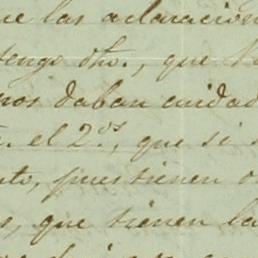 ue las aclaracion
tengo dho., que
nos daban cuidad
. el 2.º, que si
nto, pues tienen
s, que tienen la